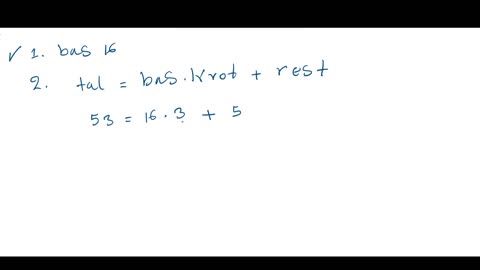 ✓ 1. bas 16
2. tal = bas · kvot + rest
53 = 16 · 3 + 5